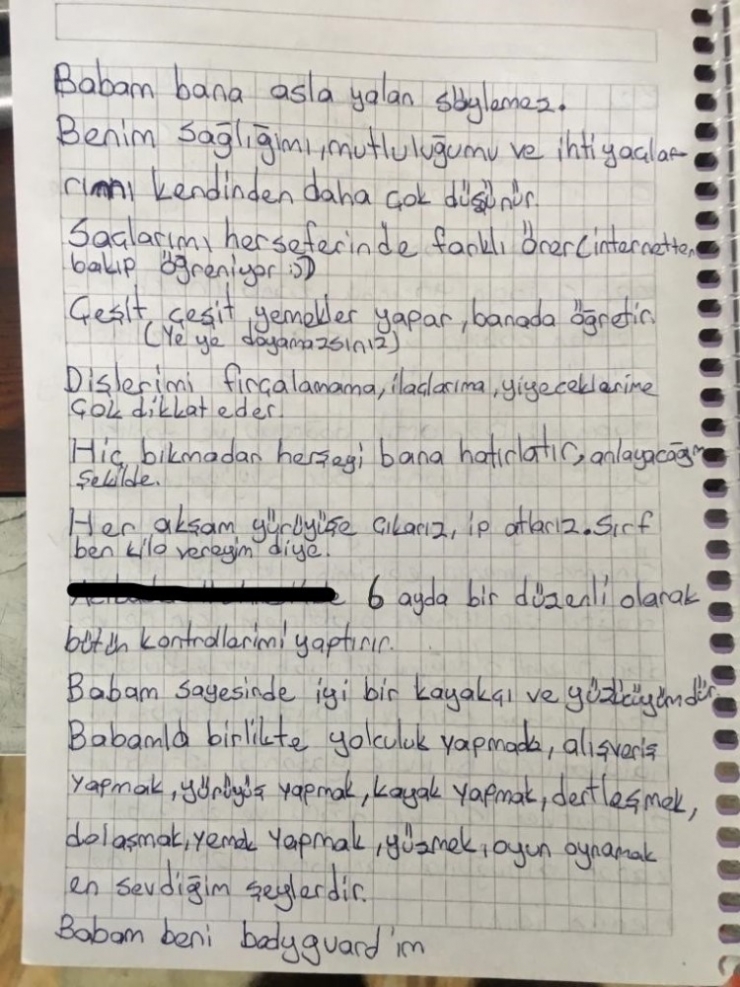 Babam bana asla yalan söylemez.
Benim sağlığımı, mutluluğumu ve ihtiyaçlar
rımnı kendinden daha çok düşünür.
Saçlarımı herseferinde farklı örer(internetten
bakıp öğreniyor :))
Çeşit çeşit yemekler yapar, banada öğretir.
(Ye ye doyamazsınız)
Dişlerimi fırçalamama, ilaçlarıma, yiyeceklerime
çok dikkat eder.
Hiç bıkmadan herşeyi bana hatırlatır, anlayacağım
şekilde.
Her akşam yürüyüşe çıkarız, ip atlarız. Sırf
ben kilo vereyim diye.
6 ayda bir düzenli olarak
bütün kontrollerimi yaptırır.
Babam sayesinde iyi bir kayakçı ve yüzücüyümdür.
Babamla birlikte yolculuk yapmada, alışveriş
yapmak, yürüyüş yapmak, kayak yapmak, dertleşmek,
dolaşmak, yemek yapmak, yüzmek, oyun oynamak
en sevdiğim şeylerdir.
Babam beni bodyguard'ım